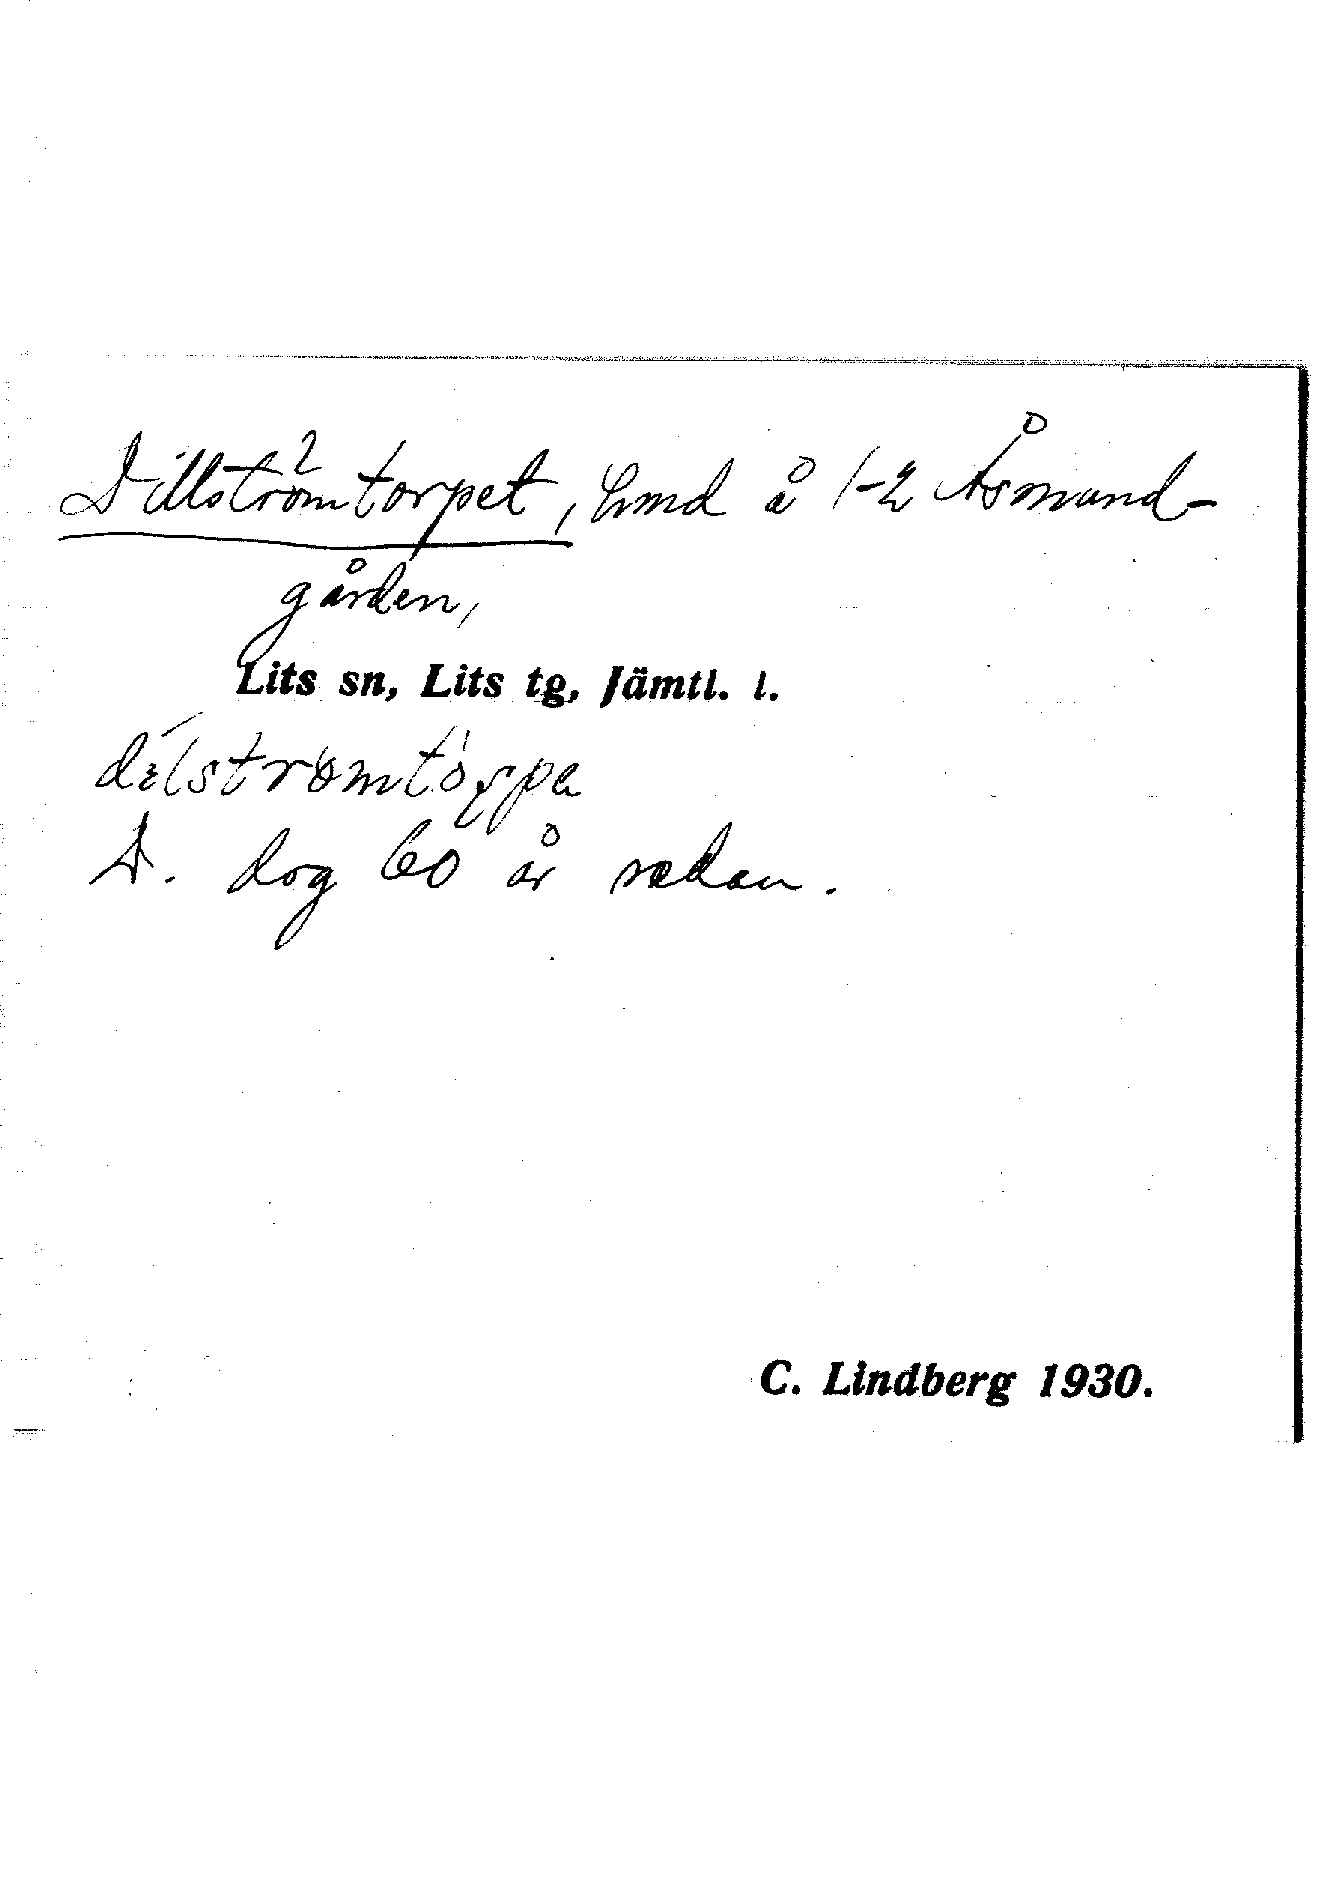 Dillströmtorpet, hmd å 1-2 Åsmund-
gården,
Lits sn, Lits tg, Jämtl. l.
D. dog 60 år sedan.
C. Lindberg 1930.